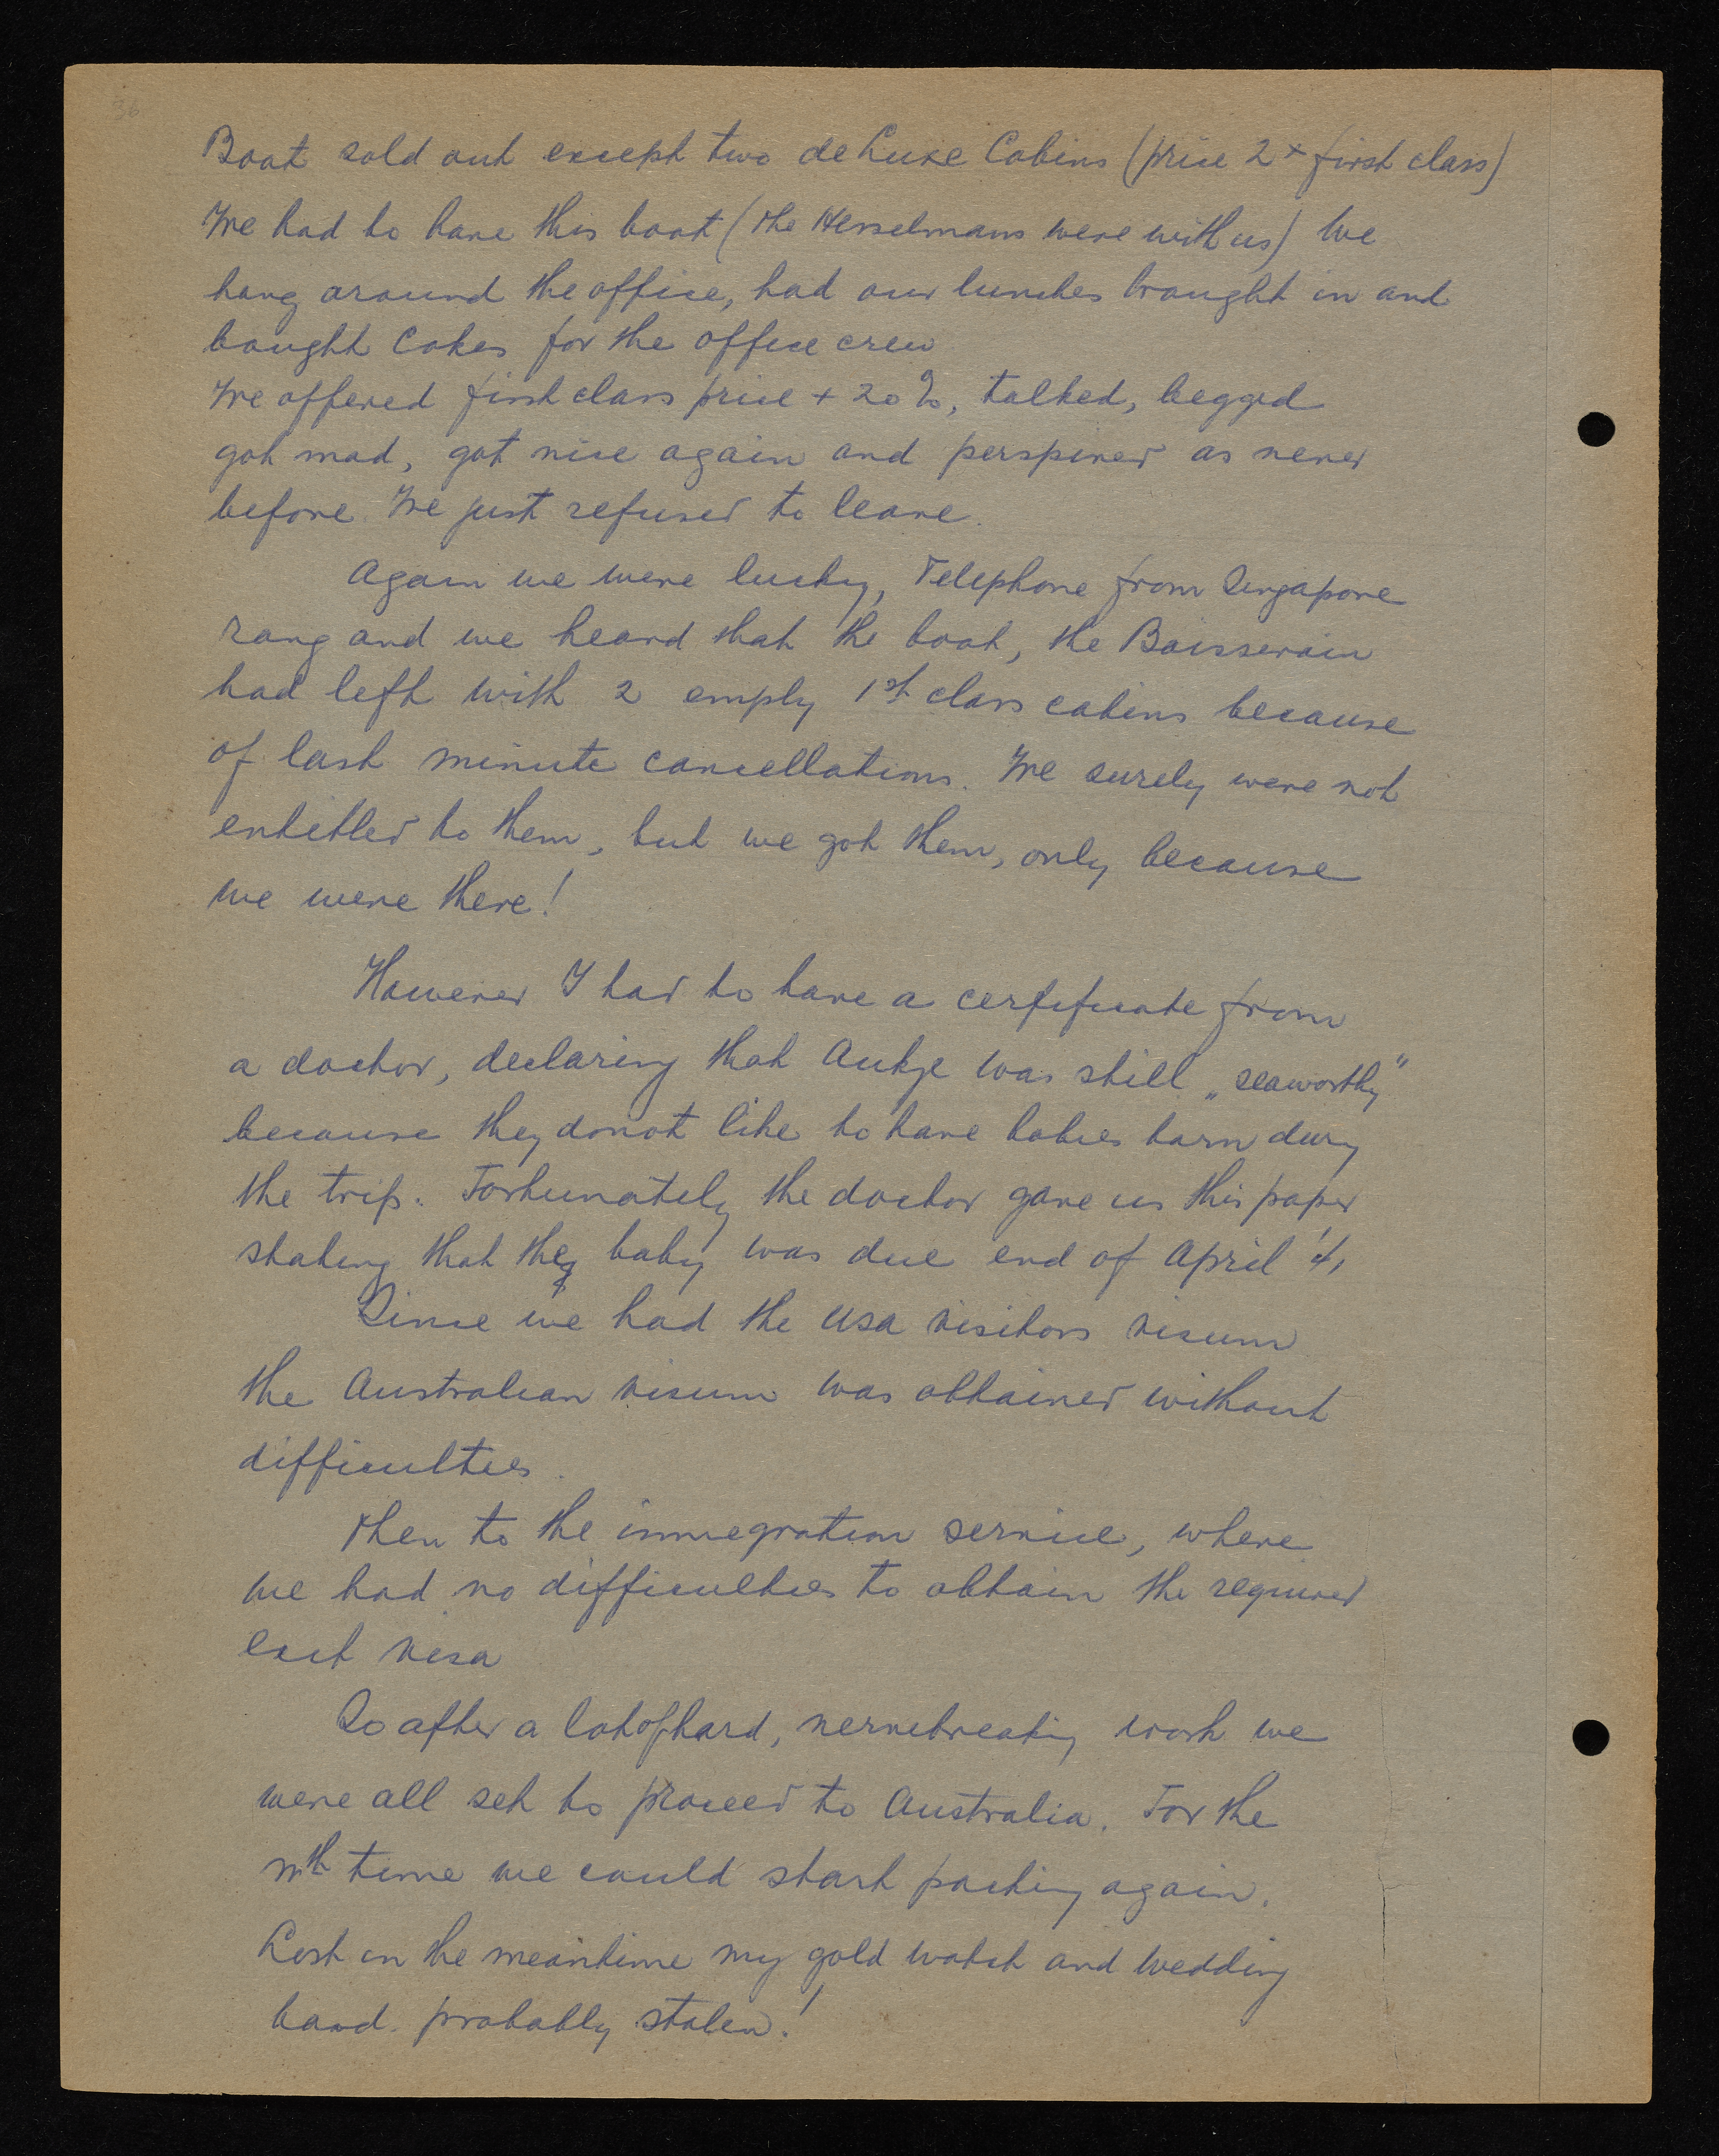 36
Boat sold out except two de Luxe Cabins (price 2 x first class)
We had to have this boat (the Hesselmans were with us) We
hang around the office, had our lunches brought in and
bought Cokes for the office crew
We offered first class price + 20%, talked, begged
got mad, got nice again and perspired as never
before. We just refused to leave.
Again we were lucky, Telephone from Singapore
rang and we heard that the boat, the Boissevain
had left with 2 empty 1st class cabins because
of last minute cancellations. We surely were not
entitled to them, but we got them, only because
we were there!
However I had to have a certificate from
a doctor, declaring that Aukje was still „seaworthy"
because they donot like to have babies born during
the trip. Fortunately the doctor gave us this paper
stating that the baby was due end of April '41
Since we had the USA visitors visum
the Australian visum was obtained without
difficulties.
Then to the immegration service, where
we had no difficulties to obtain the required
exit visa
So after a lot of hard, nervebreaking work we
were all set to proceed to Australia. For the
nth time we could start packing again.
Lost in the meantime my gold watch and wedding
band. probably stolen!